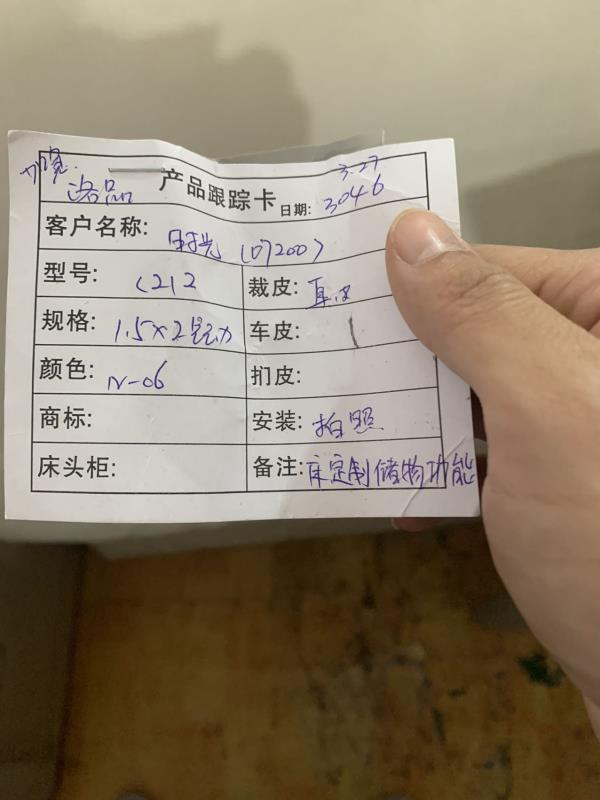 3.27
产品跟踪卡 日期: 3046
客户名称: 时光 (07200)
型号: C212 裁皮: 真皮
规格: 1.5×2 车皮:
颜色: N-06 扪皮:
商标: 安装: 拍照
床头柜: 备注: 床定制储物功能